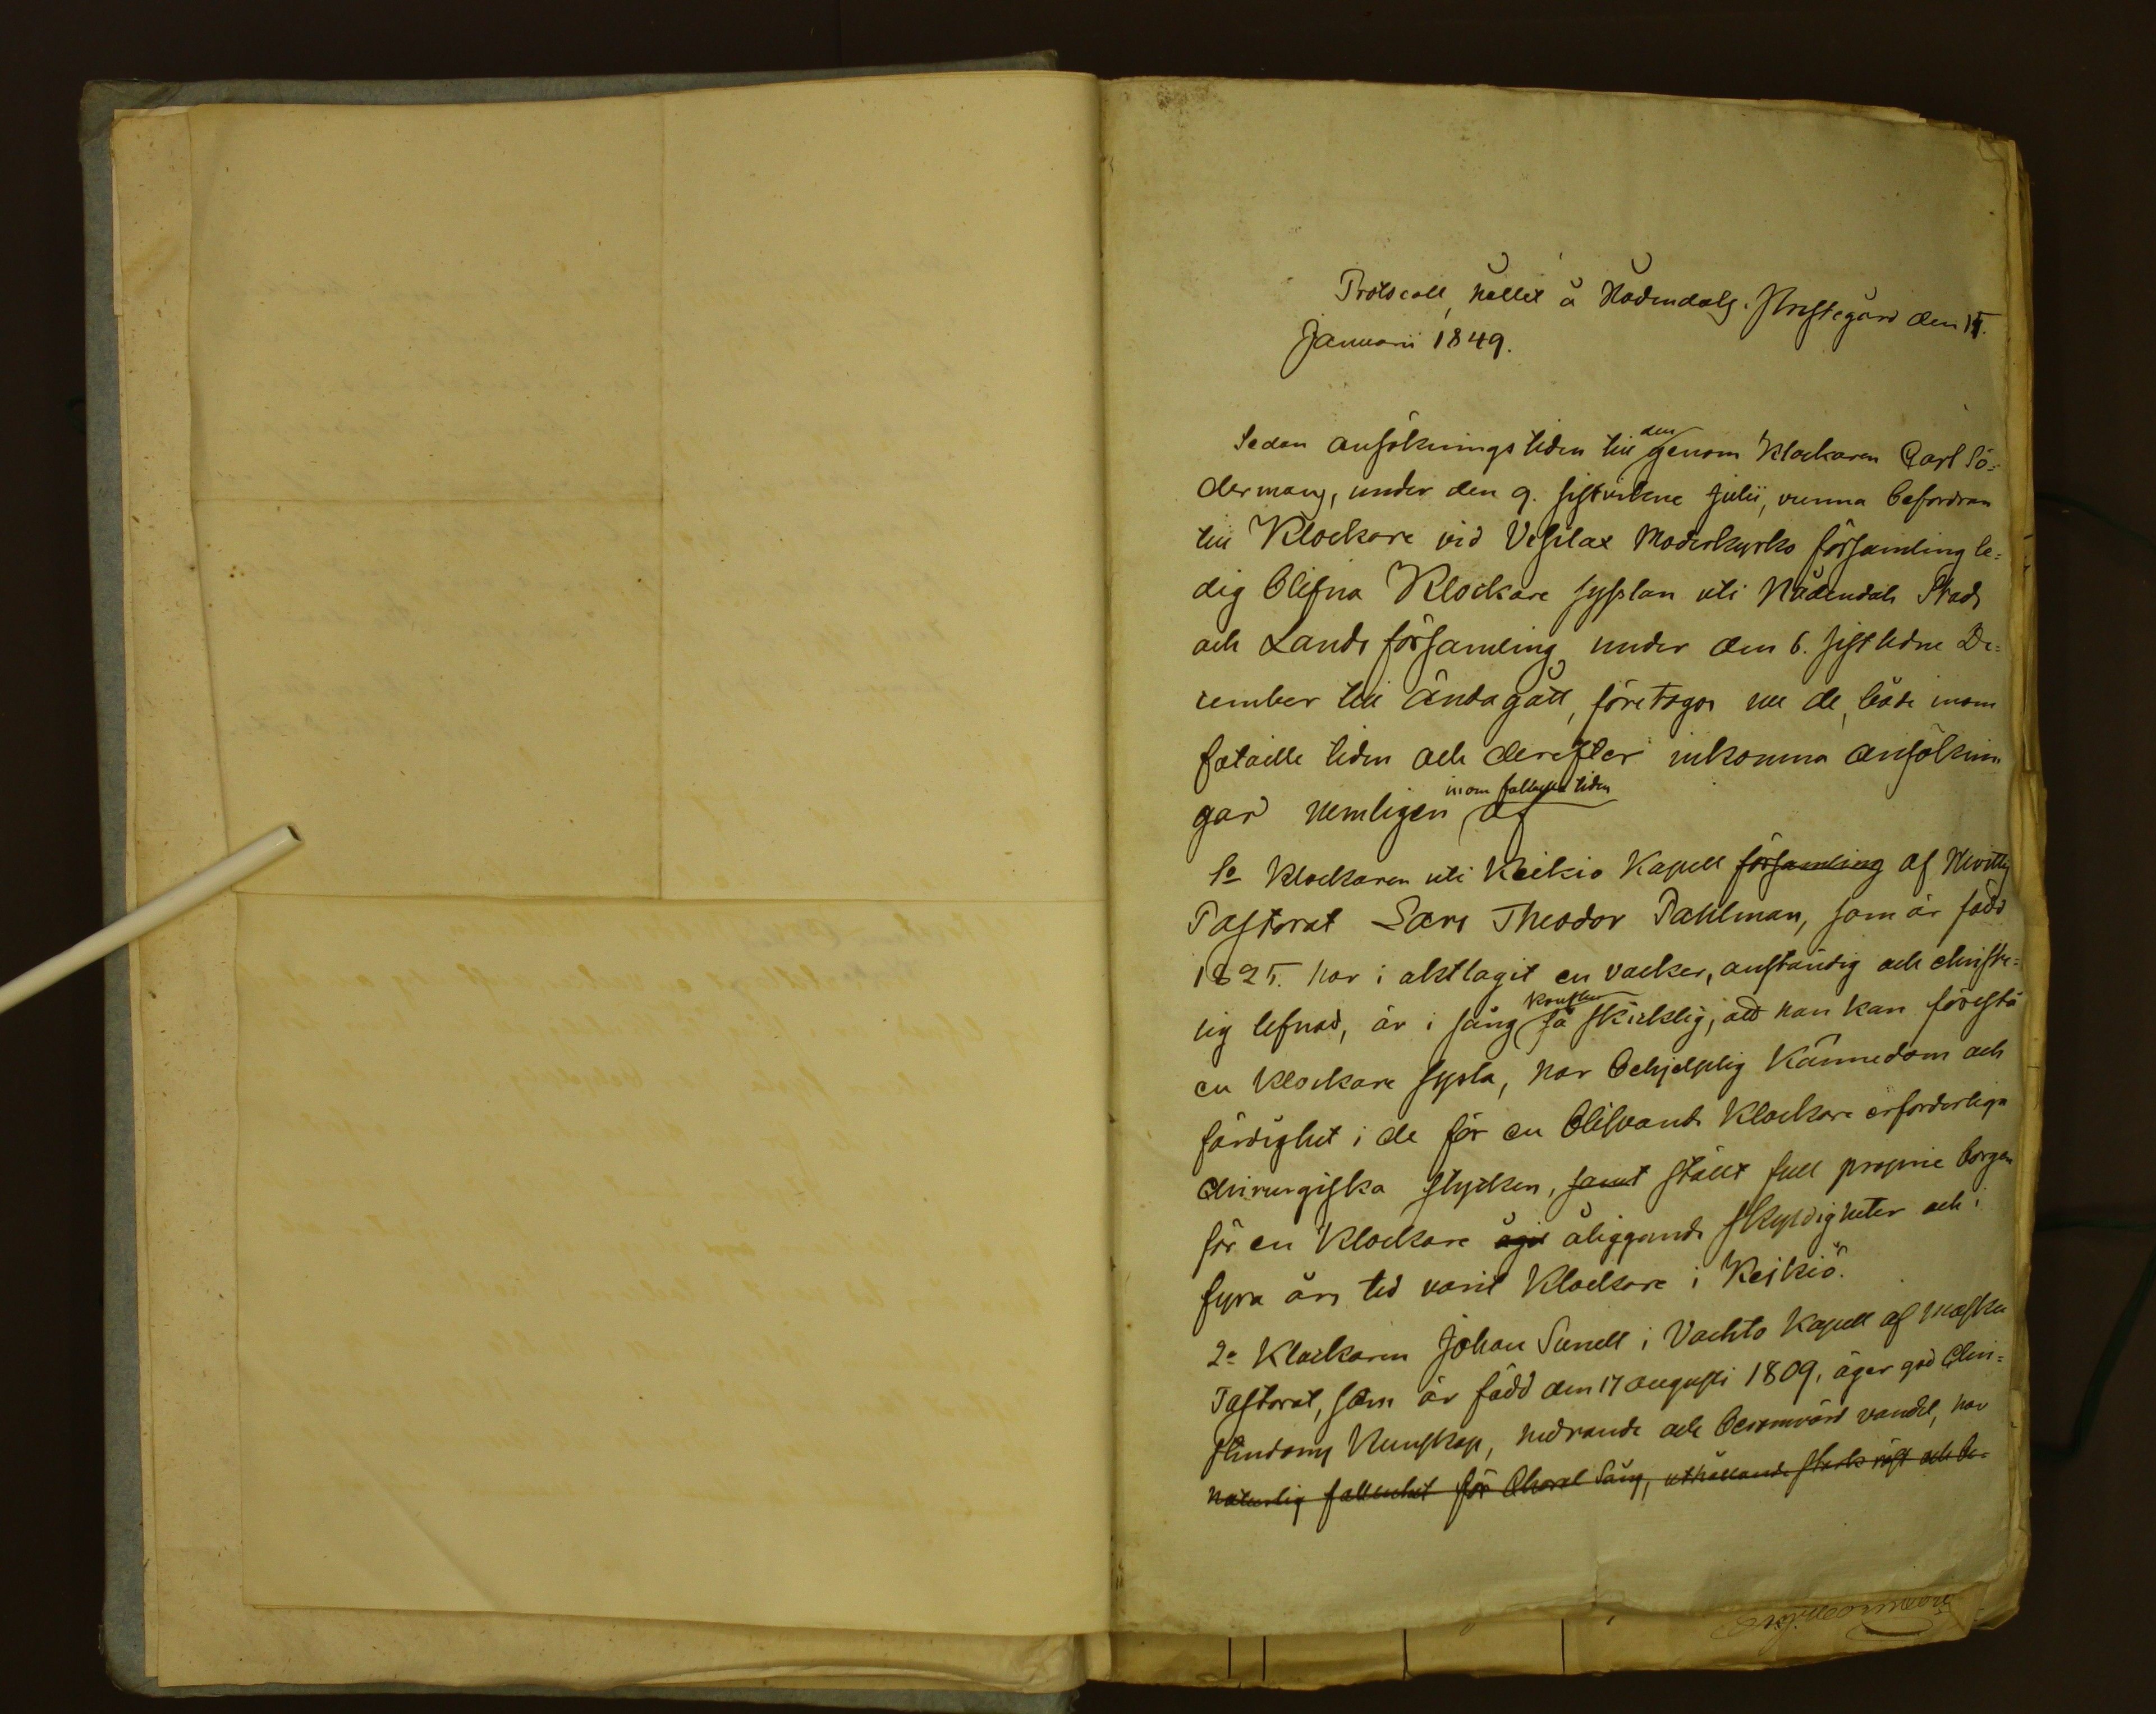 Protocoll, hållit å Nådendals Prestegård den
Januarii 1849.
Sedan ansökningstiden till den genom Klockaren Carl Sö=
dermans, under den 9. sistvikne Julii, vunna befordran
till Klockare vid Vesilax Moderkyrko församling le=
dig blifna Klockare sysslan uti Nådendals Stads
och Lands församling under den 6. sistledne De=
cember till ända gått, företogos nu de, både inom
fataille tiden och derefter inkomna ansöknin
gar nemligen inom fataille tiden af
1o Klockaren uti Keikio Kapell församling af
Pastorat Lars Theodor Dahlman, som är född
1825. har i akttagit en vacker, anständig och christe=
lig lefnad, är i sång konsten så skicklig, att han kan förestå
en Klockare syssla, har behjelplig kännedom och
färdighet i de för en blifvande Klockare erforderliga
chirurgiska stycken, samt ställt full proprie borgen
för en Klockare åliggande skyldigheter och i
fyra års tid varit Klockare i Keikiö.
2o Klockaren Johan Sunell i Vachto Kapell af Masku
Pastorat, som är född den 17 augusti 1809, äger god Chri=
stindoms Kunskap, hedrande och berömvärd vandel, har
naturlig fallenhet för Choral Sång, uthållande stark röst och be=